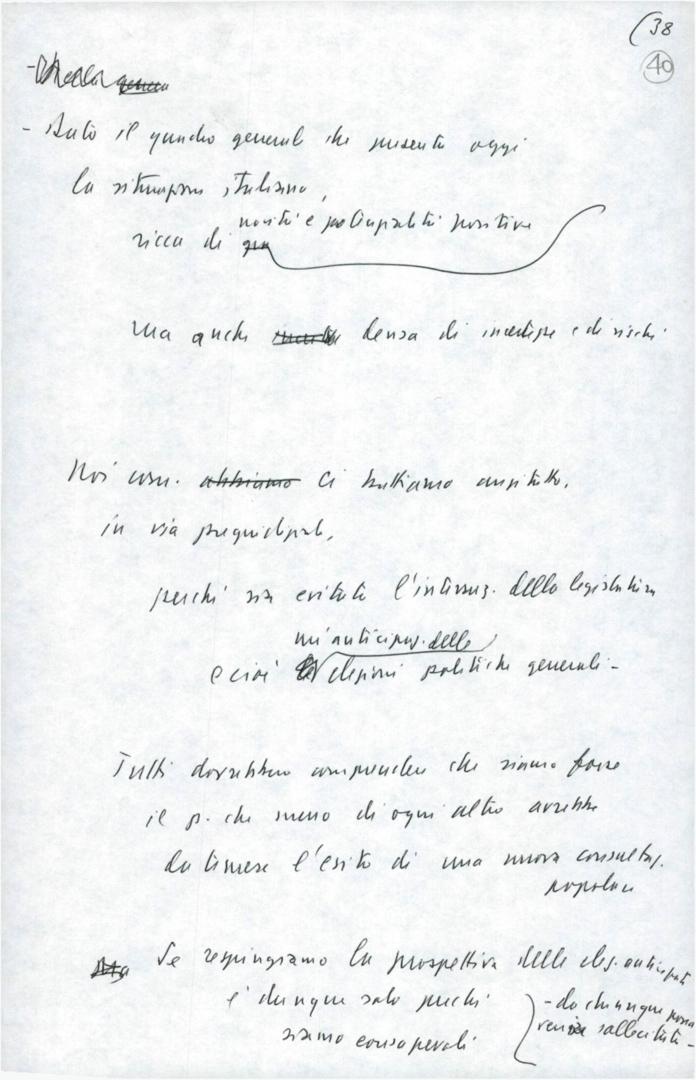 (38
40
- Dato il quadro general che presenta oggi
la situazione italiana,
novità e potenzialità positive
ricca di
ma anche densa di incertezze e di rischi
Noi com. abbiamo ci battiamo anzitutto,
in via pregiudiziale,
perché sia evitata l'interruz. della legislatura
un'anticipaz. delle
e cioè elezioni politiche generali -
Tutti dovrebbero comprendere che siamo forse
il p. che meno di ogni altro avrebbe
da temere l'esito di una nuova consultaz.
popolare
Se respingiamo la prospettiva delle elez. anticipate
è dunque solo perché
siamo consapevoli
- da chiunque possa
venire sollecitata -